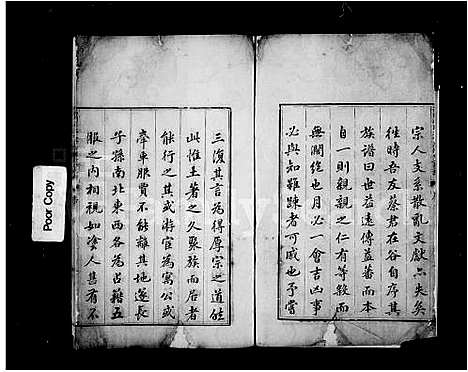 宗人支系散亂文獻亡失矣
往時吾友蔡君在谷自序其
族譜曰世益遠傳益蕃而本
自一則親親之仁有等殺而
無間絕也月必一會吉凶事
必與知雖踈者可戚也予嘗
三復其言為得厚宗之道然
此惟土著之久聚族而居者
能行之其或游宦為寓公或
牽車服賈不能離其地遂長
子孫南北東西各為占籍五
服之內相視如塗人甚有不
Poor Copy